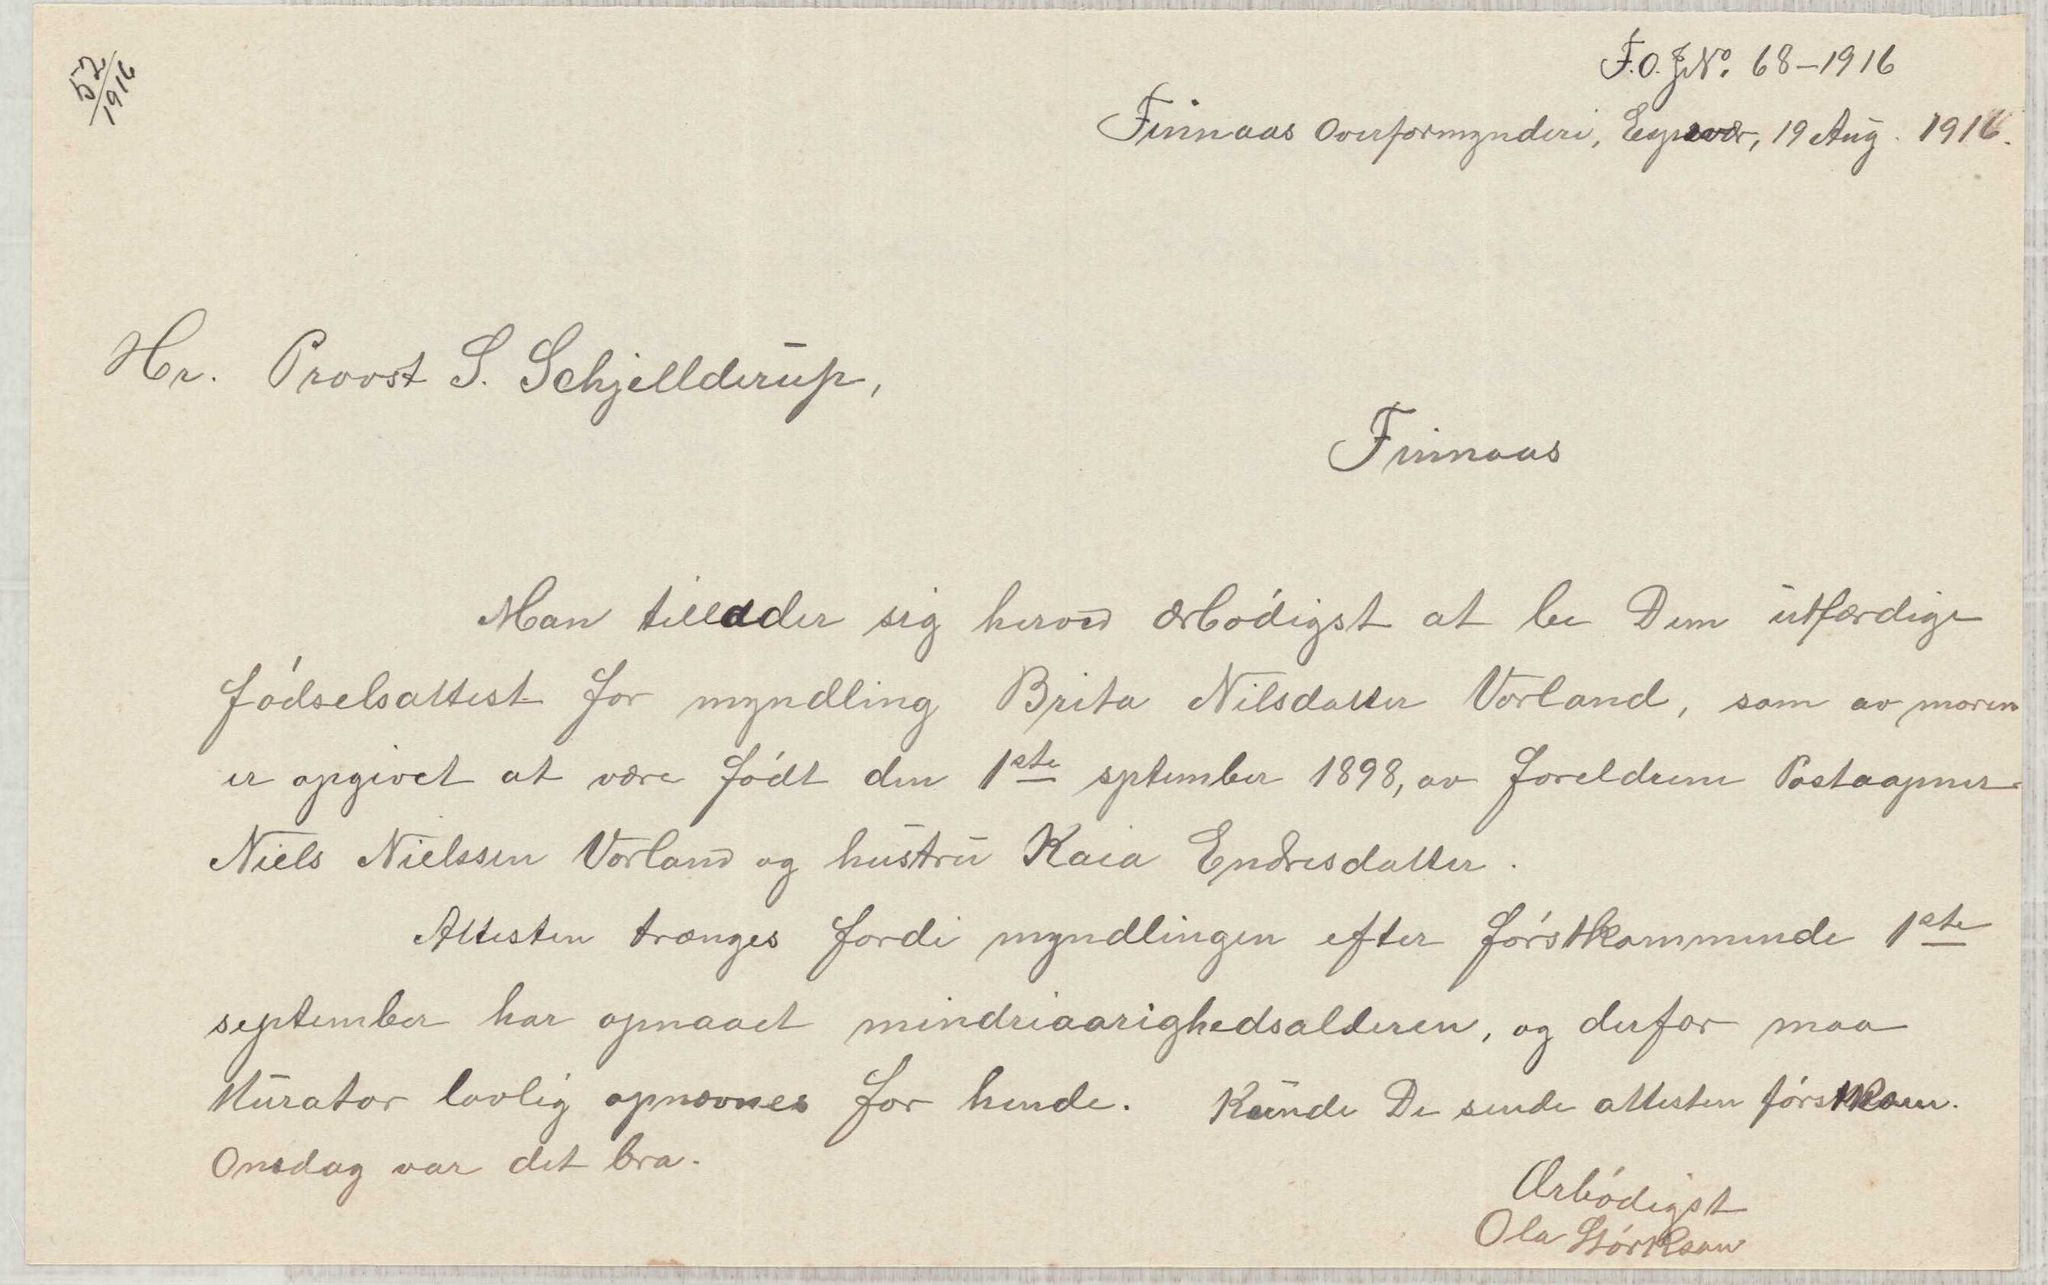 52/1916
F.O.J.No. 68-1916
Finnaas Overformynderi, Espevær, 19 Aug. 1916.
Hr. Provst S. Schjellderup,
Finnaas
Man tillader sig herved ærbódigst at be Dem utfærdige
fódselsattest for myndling Brita Nilsdatter Vorland, som av moren
er opgivet at være fódt den 1ste sptember 1898, av foreldrene Postaapner
Niels Nielssen Vorland og hustru Kaia Endresdatter.
Attesten trænges fordi myndlingen efter fórstkommende 1ste
september har opnaaet mindreaarighedsalderen, og derfor maa
Kurator lovlig opnævnes for hende. Kunde De sende attesten fórstkom.
Onsdag var det bra.
Ærbódigst
Ola